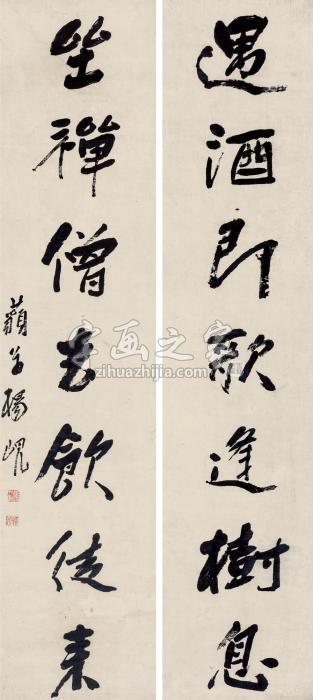 遇酒即歌逢樹息
坐禪僧去飲徒來
藐翁楊峴
字画之家
zihuazhijia.com